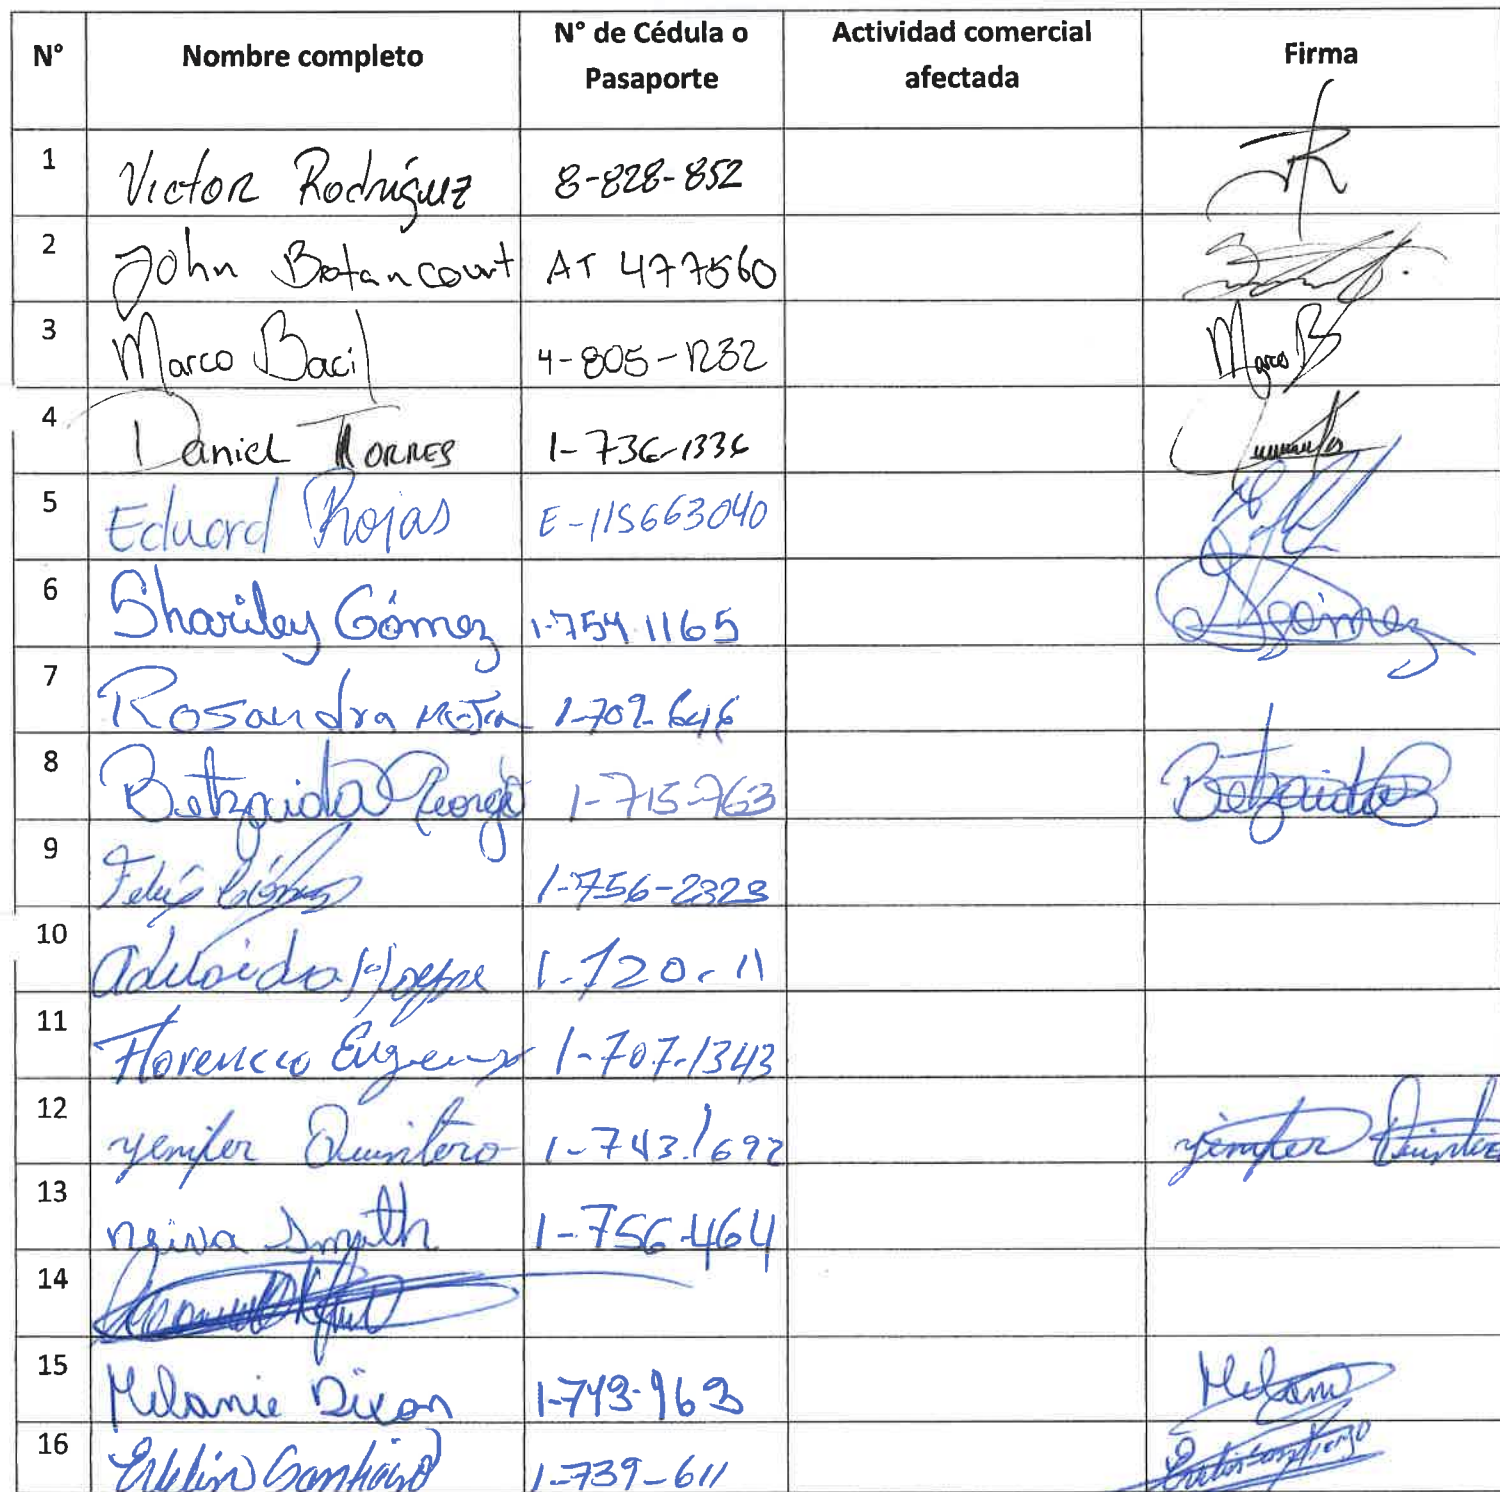 N° Nombre completo N° de Cédula o Pasaporte Actividad comercial afectada Firma
1 Victor Rodríguez 8-828-852
2 John Betancourt AT 477560
3 Marco Bacil 4-805-1232 Marco B
4 Daniel Torres 1-736-1336
5 Eduard Rojas E-115663040
6 Shariley Gómez 1-754-1165 Gómez
7 Rosandra 1-709-646
8 Betzaida 1-715-763 Betzaida
9 Gómez 1-756-2323
10 1-720-11
11 Florencio 1-707-1343
12 yenifer Quintero 1-743-1692 yenifer Quintero
13 neiva Smith 1-756-464
14
15 Melanie Dixon 1-743-963 Melani
16 Santiago 1-739-611